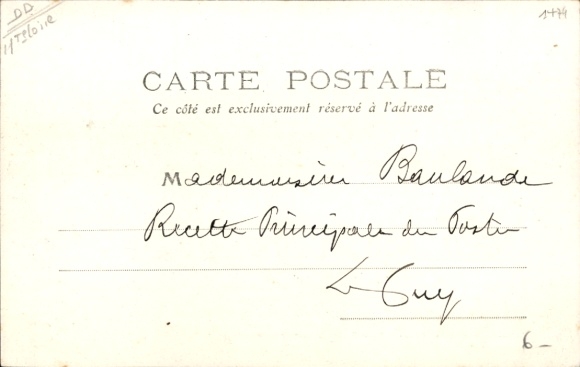 DD
Hte Loire
1474
CARTE POSTALE
Ce côté est exclusivement réservé à l'adresse
Mademoiselle Baulande
Recette Principale des Postes
Le Puy
6 –